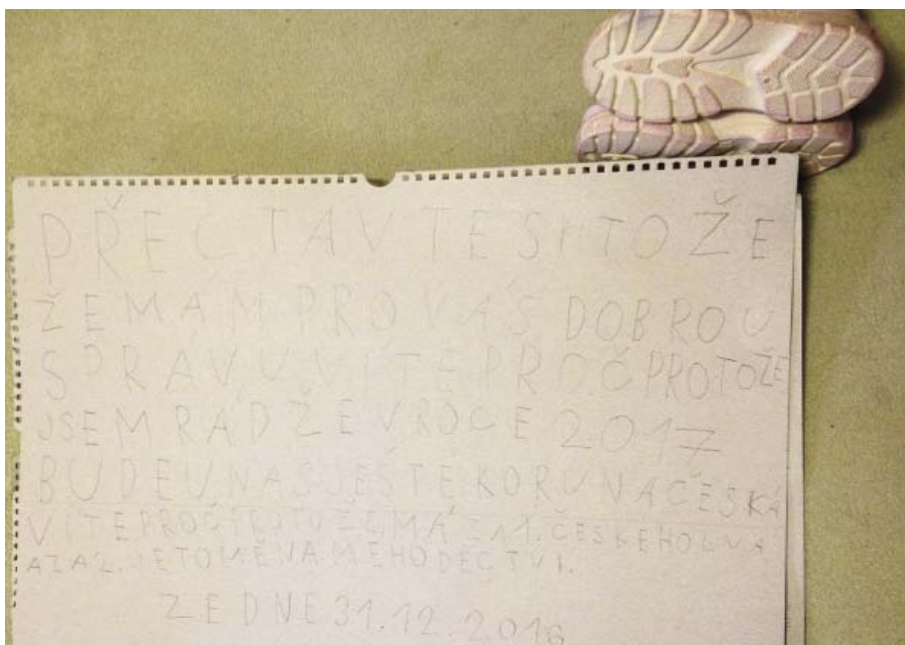 PŘEČTAVTESITOŽE
ŽEMÁMPROVÁSDOBROU
SPRÁVUVÍTEPROČPROTOŽE
JSEMRÁDŽEVROCE2017
BUDEUNÁSJEŠTĚKORUNAČESKÁ
VÍTEPROČPROTOŽEMÁZA1.ČESKÉHOLVA
AZA2.JETOMĚNAMÉHODĚCTVÍ.
ZEDNE31.12.2016